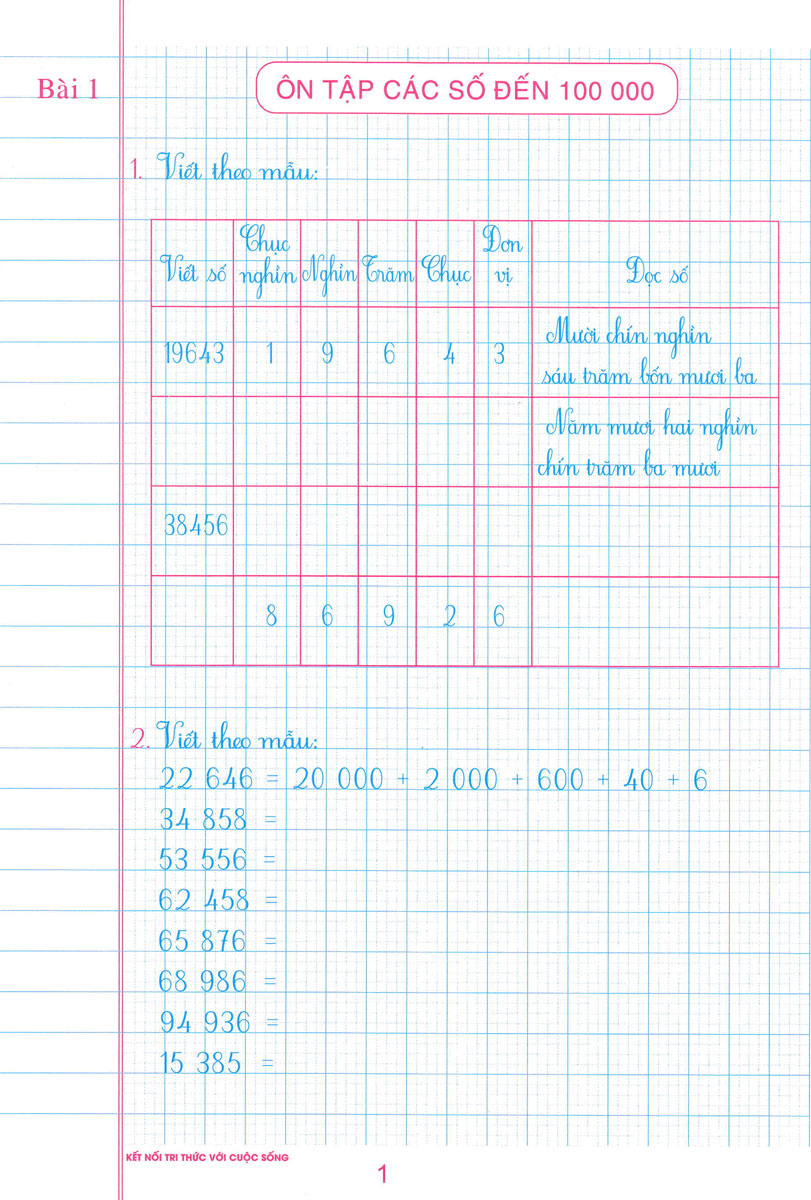 Bài 1
ÔN TẬP CÁC SỐ ĐẾN 100 000
1. Viết theo mẫu:
Viết số Chục nghìn Nghìn Trăm Chục Đơn vị Đọc số
19643 1 9 6 4 3 Mười chín nghìn
sáu trăm bốn mươi ba
Năm mươi hai nghìn
chín trăm ba mươi
38456
8 6 9 2 6
2. Viết theo mẫu:
22 646 = 20 000 + 2 000 + 600 + 40 + 6
34 858 =
53 556 =
62 458 =
65 876 =
68 986 =
94 936 =
15 385 =
KẾT NỐI TRI THỨC VỚI CUỘC SỐNG
1